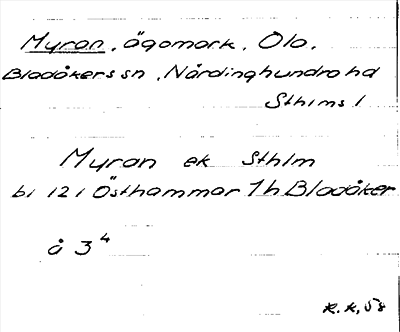 Myran, ägomark, Ola,
Bladåkers sn, Närdinghundra hd
Sthlms l
Myran ek Sthlm
bl 12 i Östhammar 1h Bladåker
å 3⁴
R.K, 58